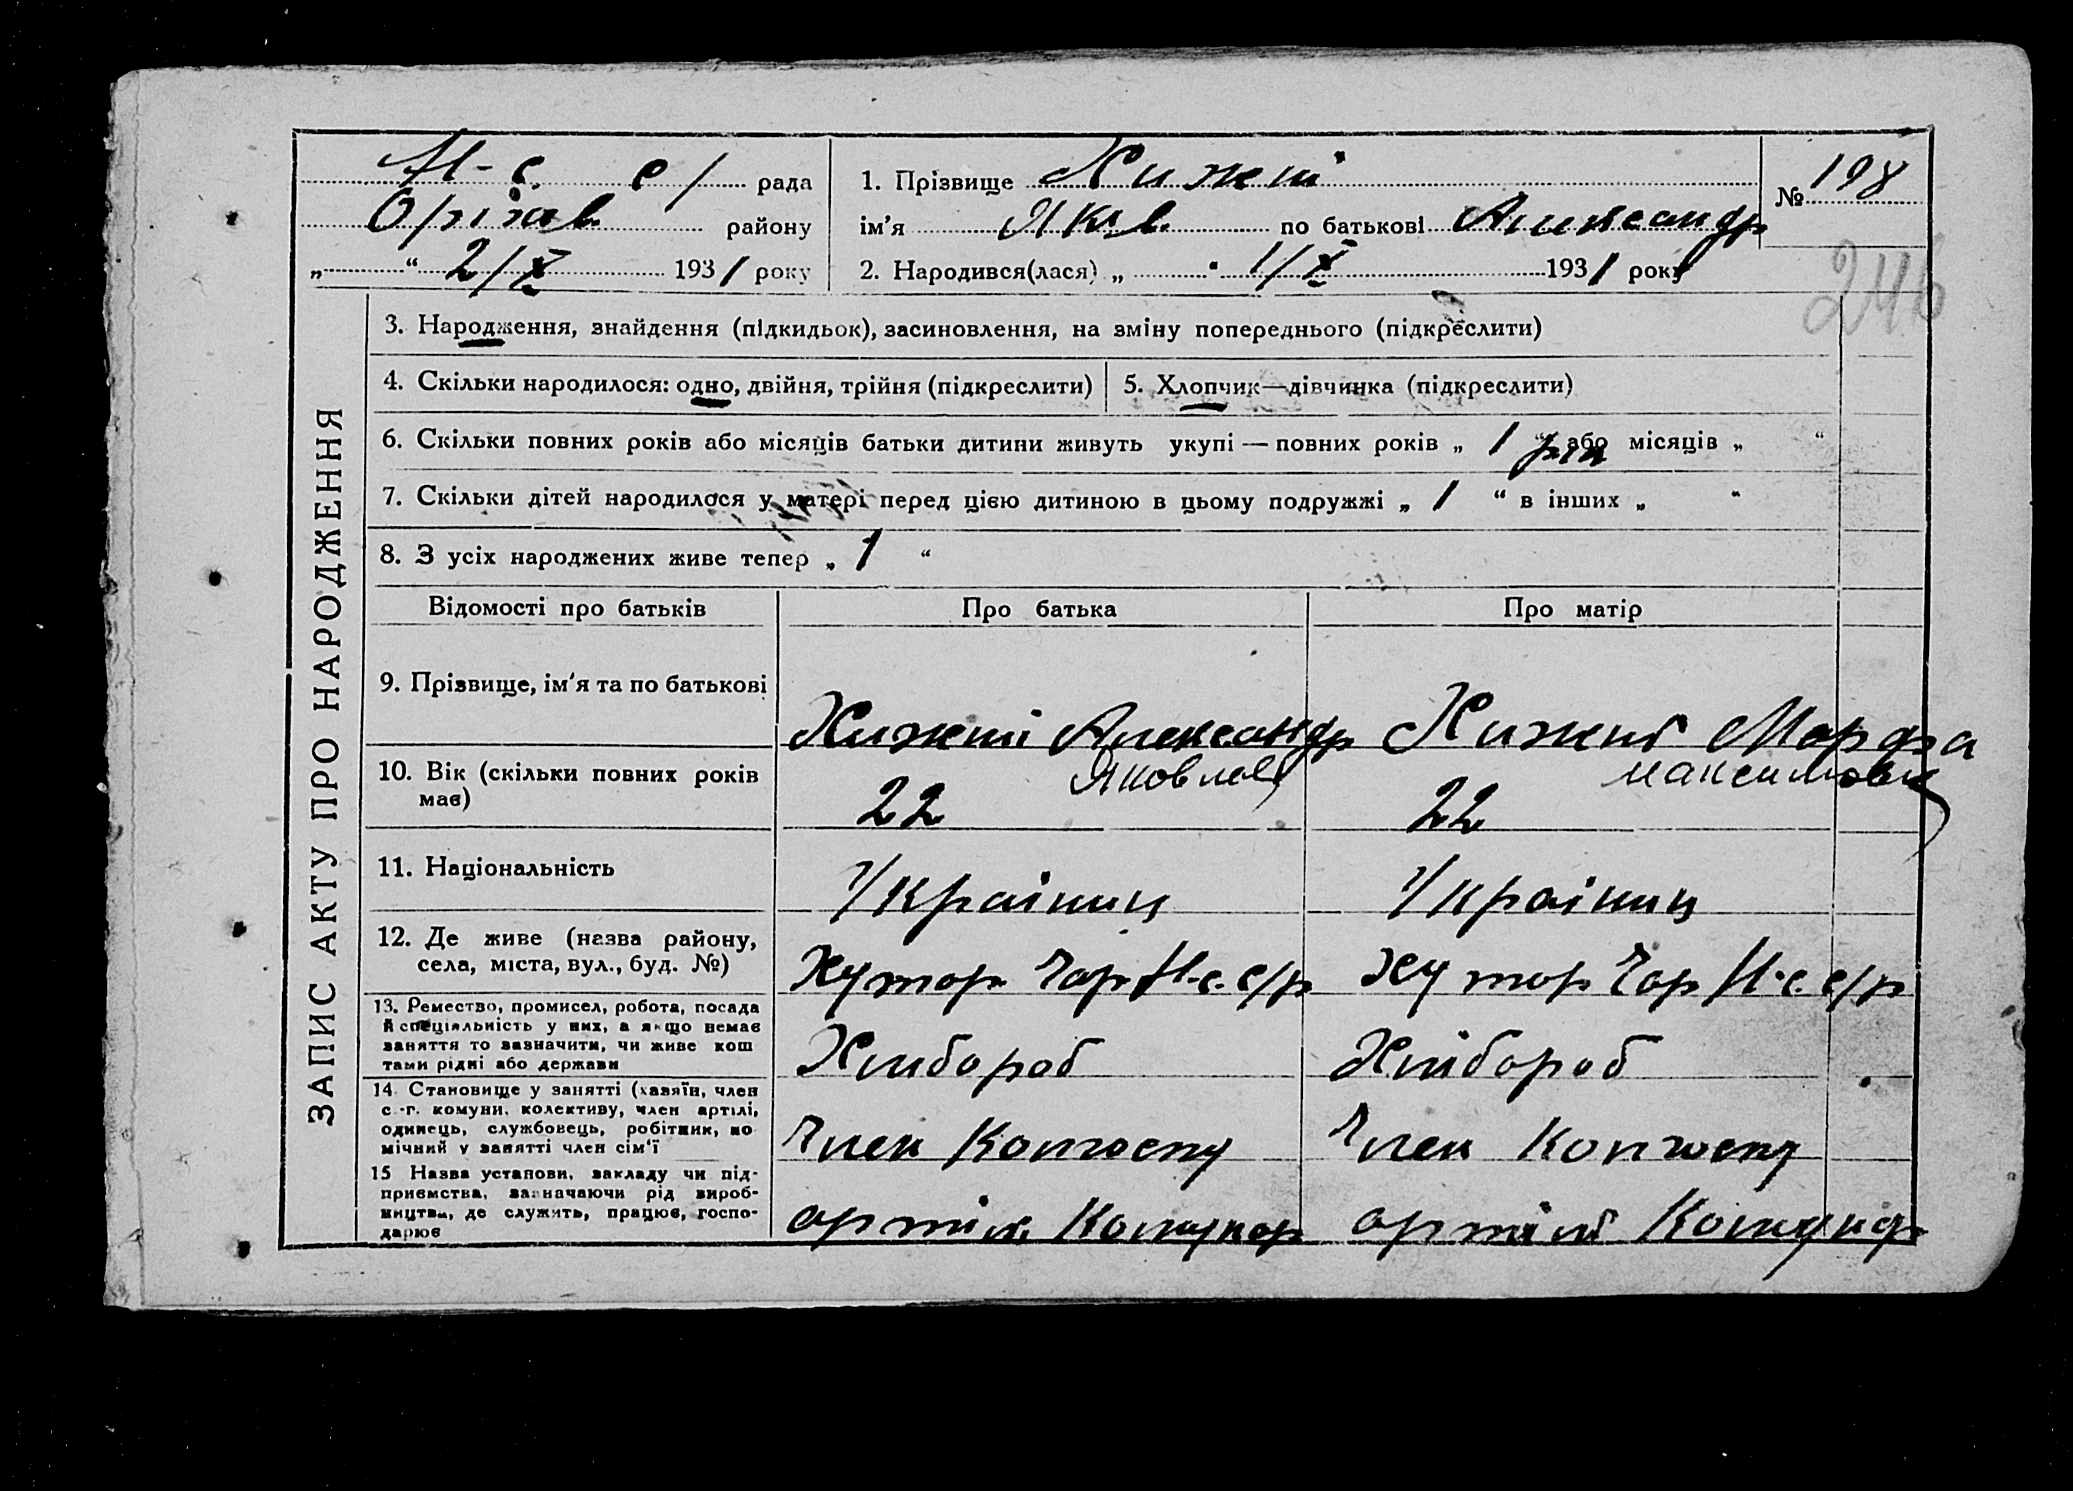 Н-с. с/ рада
Оржав. району
„ “ 2/X 1931 року
1. Прізвище Хижні
ім'я Яків. по батькові Александр
2. Народився(лася) „ “ 1/X 1931 року
№ 198
246
ЗАПИС АКТУ ПРО НАРОДЖЕННЯ
3. Народження, знайдення (підкидьок), засиновлення, на зміну попереднього (підкреслити)
4. Скільки народилося: одно, двійня, трійня (підкреслити)
5. Хлопчик—дівчинка (підкреслити)
6. Скільки повних років або місяців батьки дитини живуть укупі — повних років „ 1 рік або місяців „ “
7. Скільки дітей народилося у матері перед цією дитиною в цьому подружжі „ 1 “ в інших „ “
8. З усіх народжених живе тепер „ 1 “
Відомості про батьків Про батька Про матір
9. Прізвище, ім'я та по батькові
Хижні Александр Яковлев
Хижні Марфа Максимовн
10. Вік (скільки повних років
має)
22
22
11. Національність
Україниц
Україниц
12. Де живе (незва району,
села, міста, вул., буд. №)
Хутор Чор Н-с. с/р
Хутор Чор Н-с. с/р
13. Ремество, промисел, робота, посада
й спеціяльність у них, а якщо немає
заняття то зазначити, чи живе кош
тами рідні або держави
Хлібороб
Хлібороб
14. Становище у занятті (хазяїн, член
с.-г. комуни, колективу, член артілі,
одинець, службовець, робітник, по
мічний у занятті член сім'ї
Член Колгоспу
Член Колгоспу
15 Назва установи, закладу чи під-
приємства, зазначаючи рід вироб-
ництва, де служить, працює, госпо-
дарює
артіл.
артілі